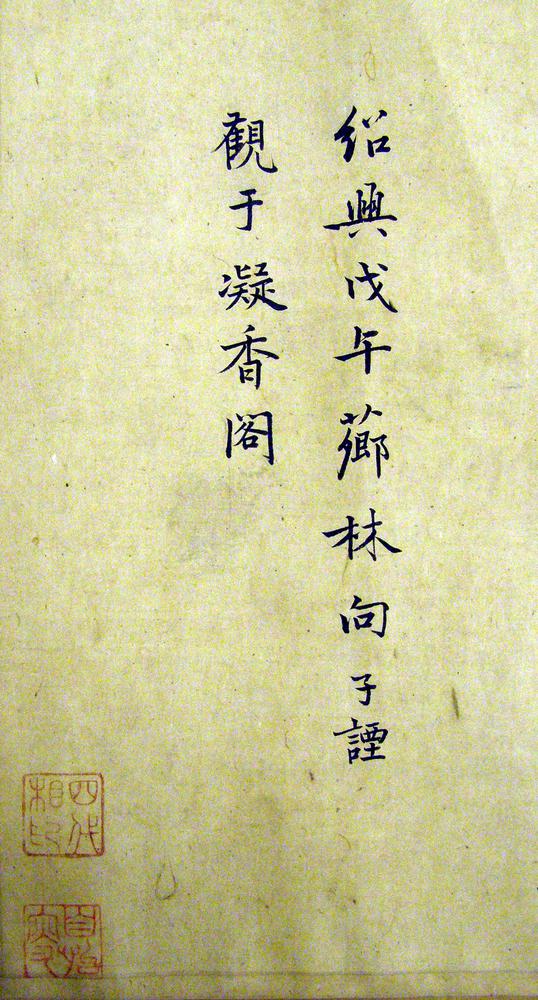 紹興戊午薌林向子諲
觀于凝香閣
四代
相印